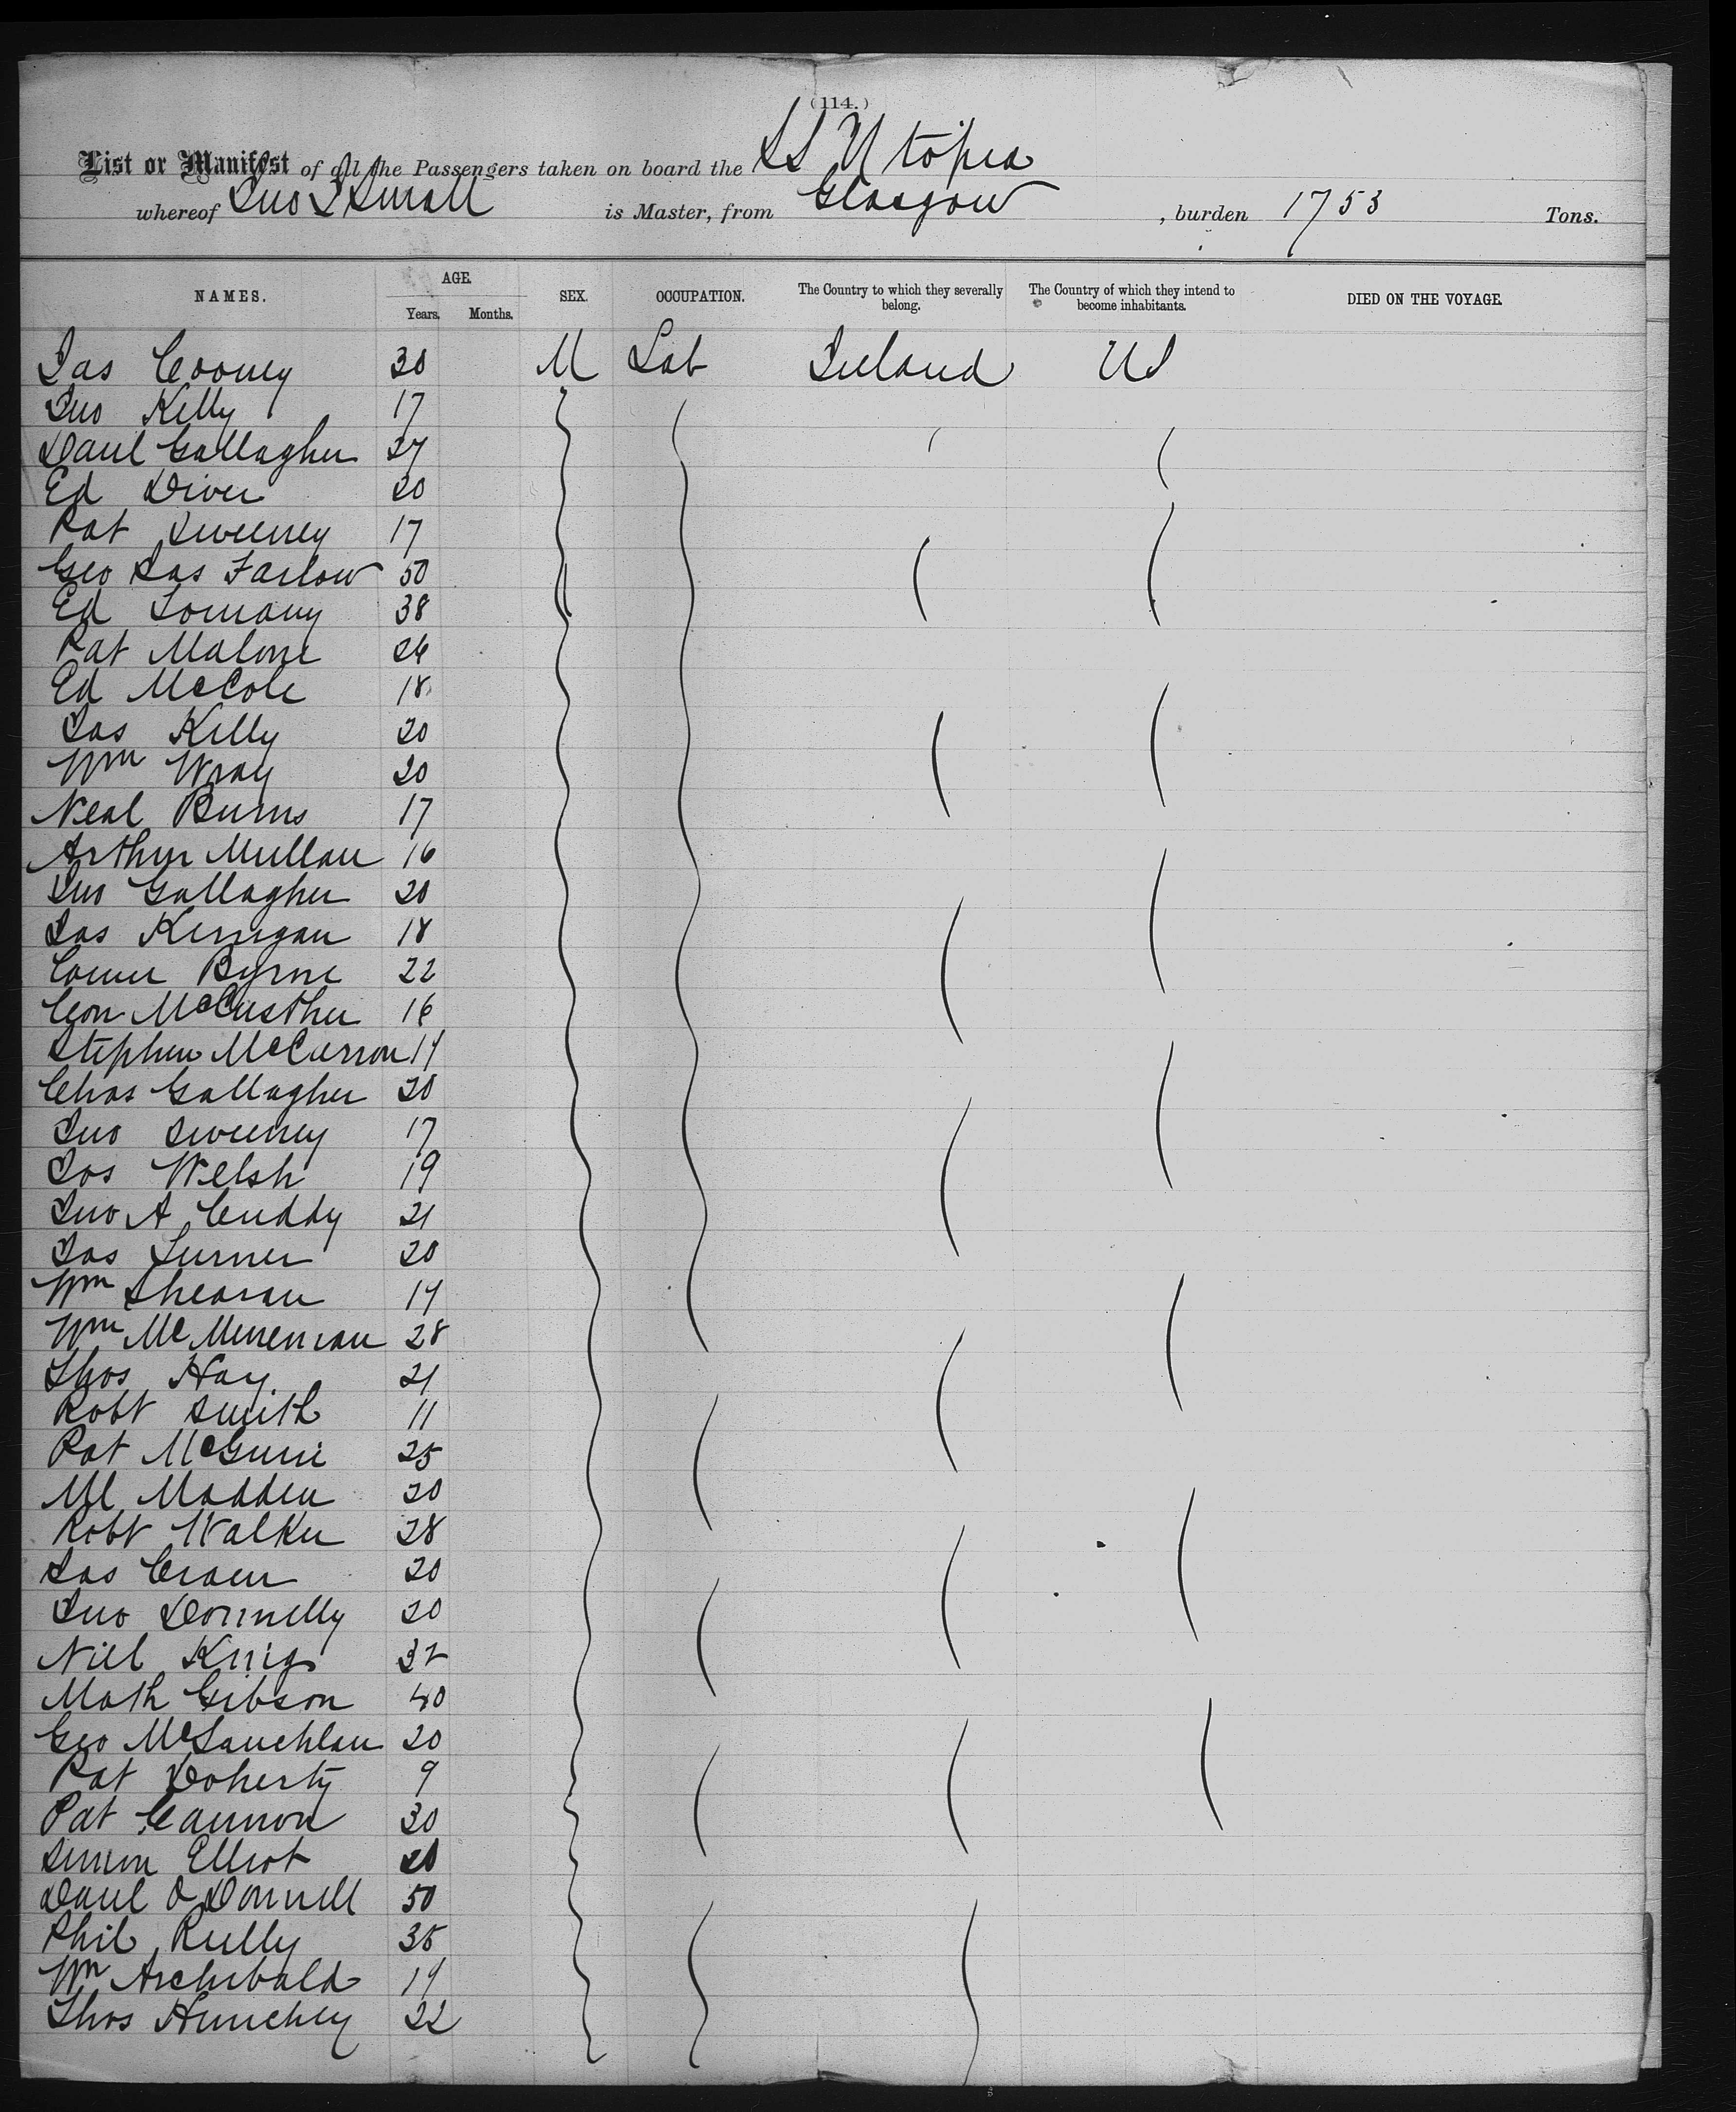 (114.)
List or Manifest of all the Passengers taken on board the SS Utopia
whereof Jno S Small is Master, from Glasgow, burden 1753 Tons.
NAMES. AGE. Years. Months. SEX. OCCUPATION. The Country to which they severally belong. The Country of which they intend to become inhabitants. DIED ON THE VOYAGE.
Jas Cooney 30 M Lab Ireland US
Jno Kelly 17
Danl Gallagher 27
Ed Diver 20
Pat Sweeney 17
Geo Farlow 50
Ed 38
Pat Malone 24
Ed McCole 18
Jas Kelly 20
Wm Wray 20
Neal Burns 17
Arthur Mullan 16
Jno Gallagher 20
Jas Kerrigan 18
Byrne 22
Con 16
Stephen McCarron 14
Chas Gallagher 20
Jno Sweeney 17
Jos Welsh 19
Jno A Cuddy 21
Jas Turner 20
Wm Shearan 19
Wm McMenenian 28
Thos Hay 21
Robt Smith 11
Pat McGuire 25
Ml Madden 20
Robt Walker 28
Jas 20
Jno Donnelly 20
Niel 32
Math Gibson 40
Geo McLauchlan 20
Pat Doherty 9
Pat Cannon 30
Simon Elliot 20
Danl O Donnell 50
Phil Reilly 35
Wm Archibald 19
Thos Hunchey 22